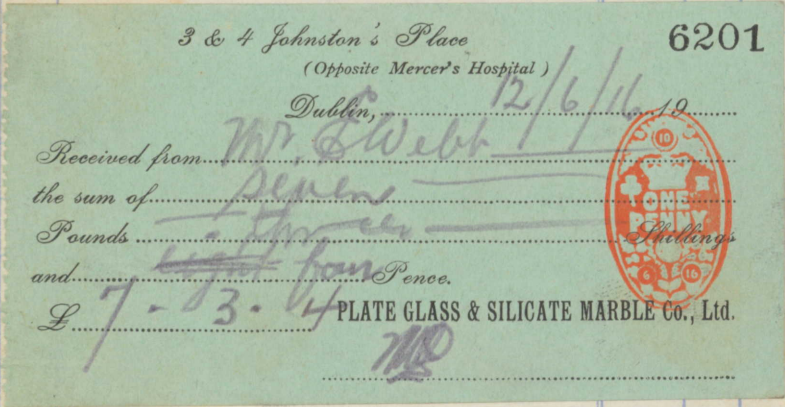 3 & 4 Johnston's Place
6201
(Opposite Mercer's Hospital)
Dublin, 12/6/16 19
Received from Mr. E Webb
the sum of seven
Pounds three Shillings
and eight four Pence.
£ 7 - 3 - 4 PLATE GLASS & SILICATE MARBLE Co., Ltd.
ONE
PENNY
10
6 16